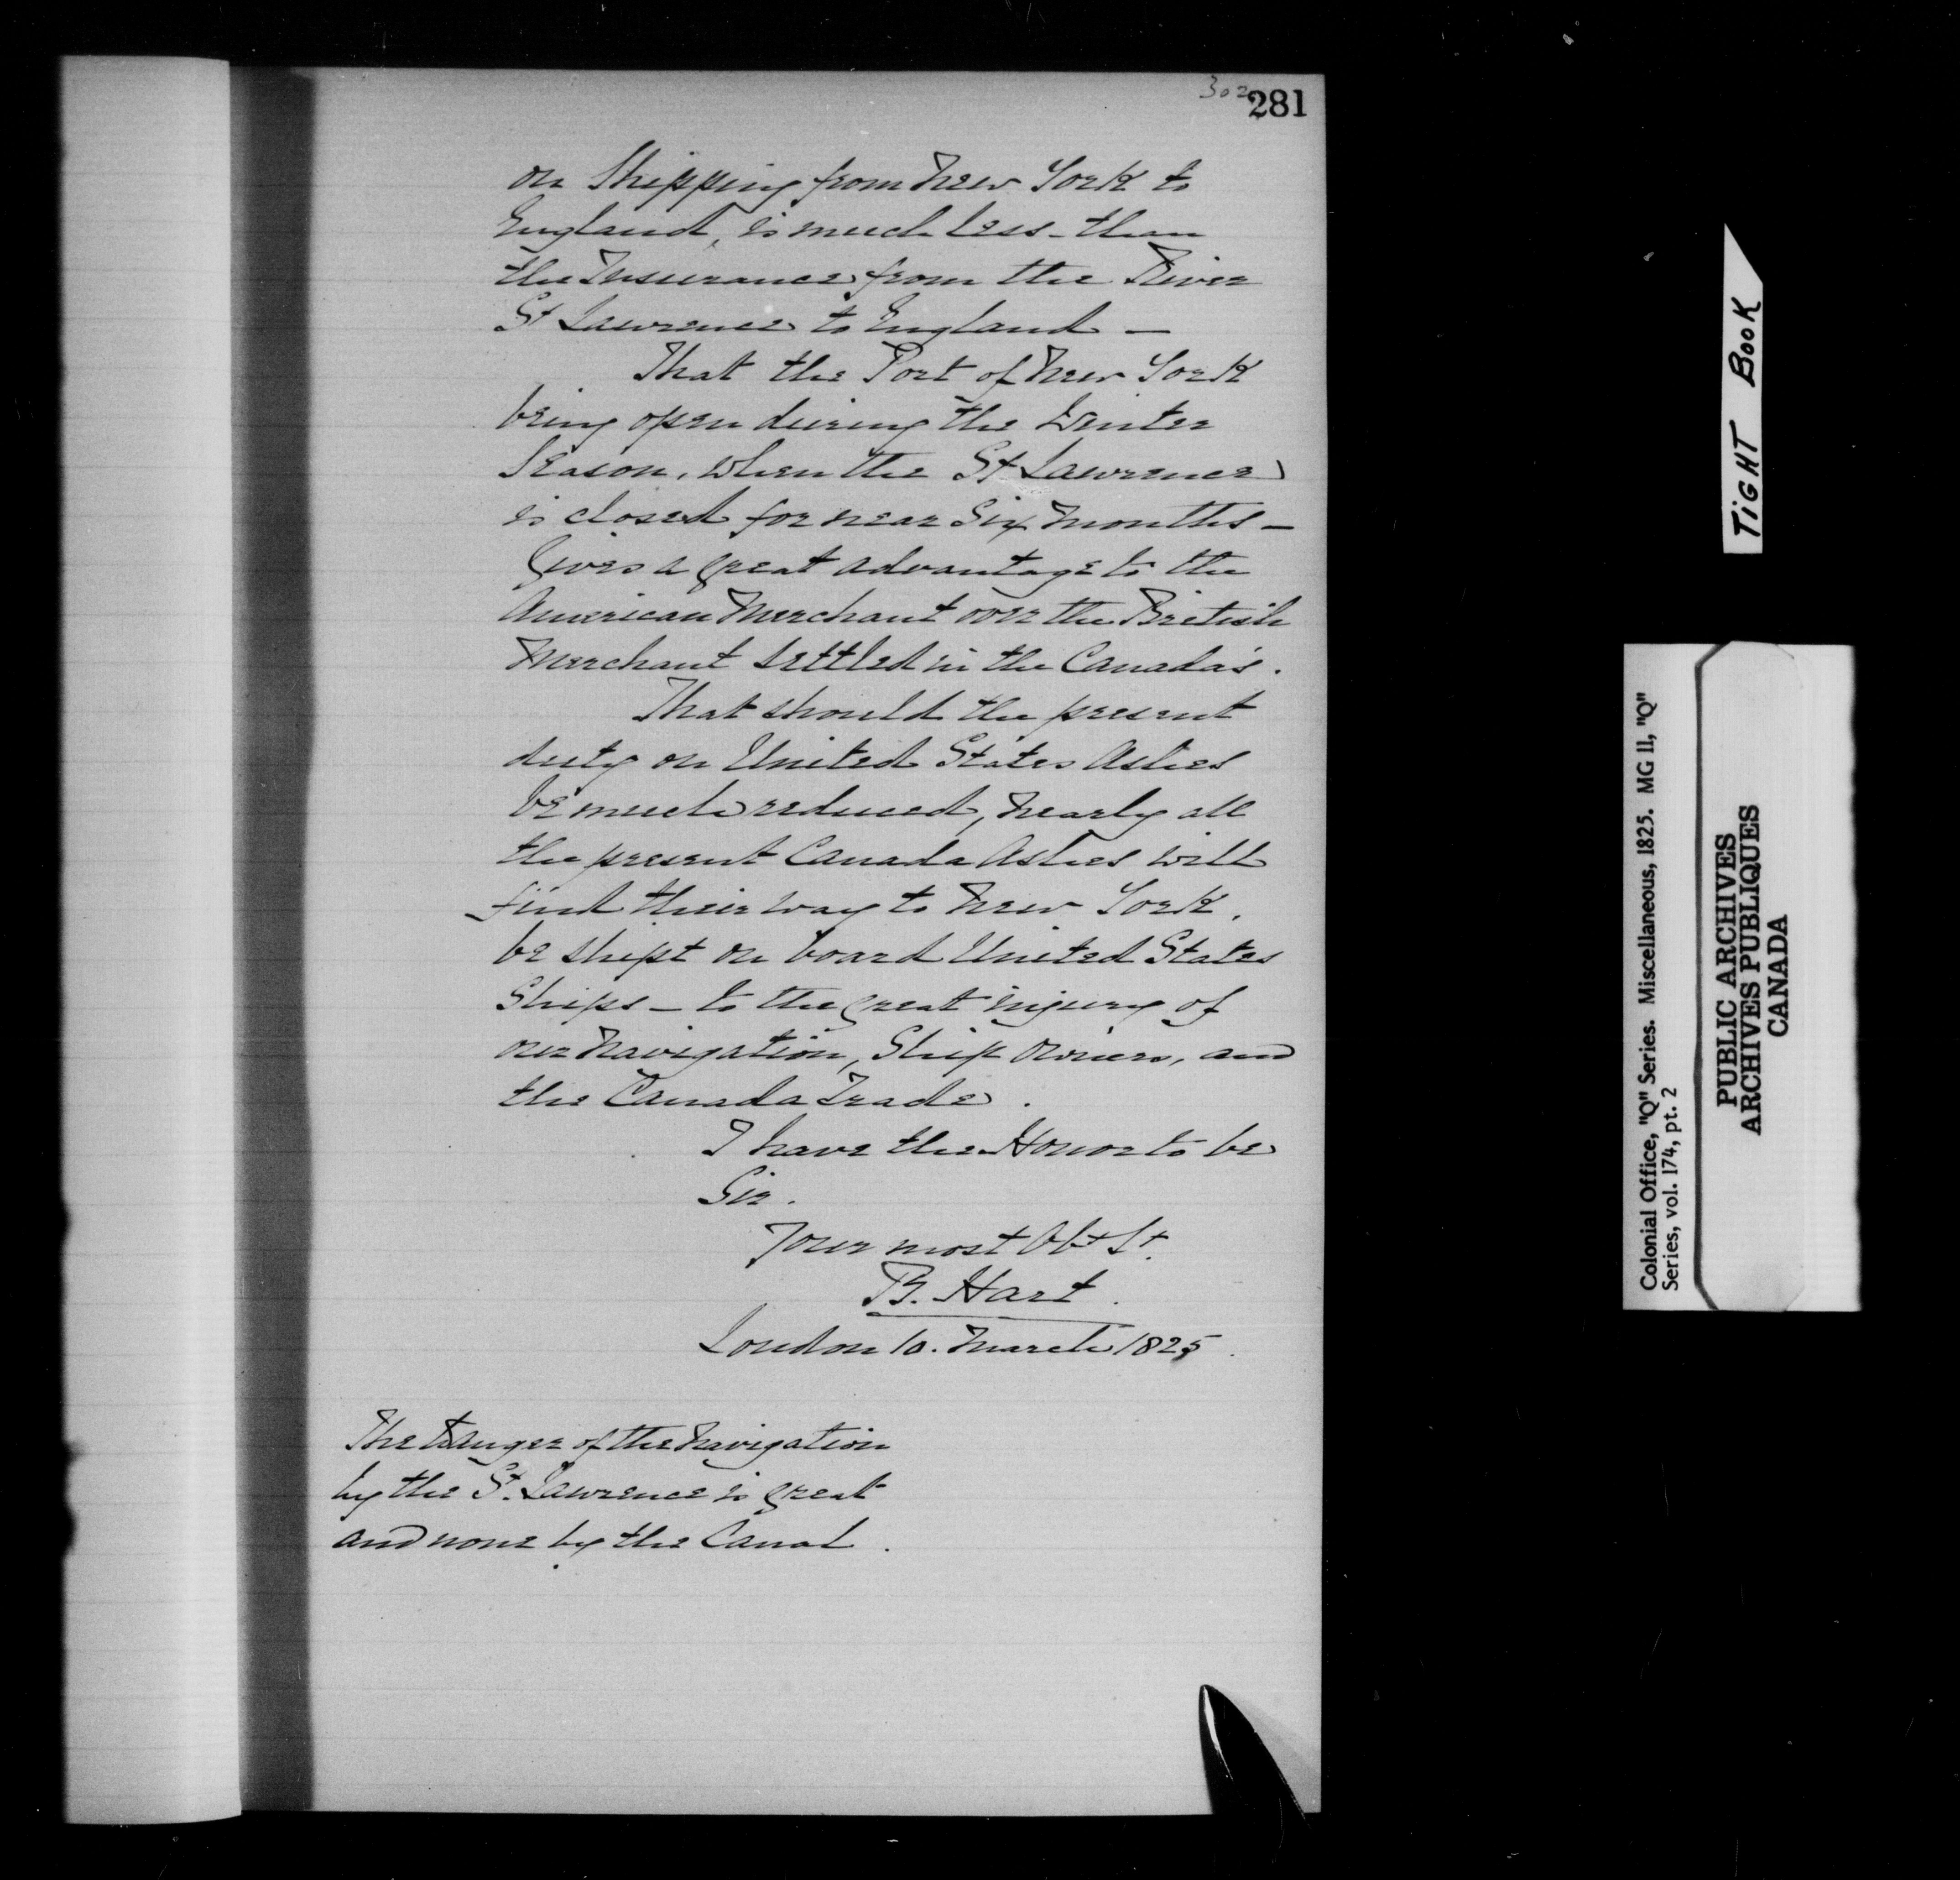 302
281
on Shipping from New York to
England, is much less - than
the Insurance from the River
St Lawrence to England —
That the Port of New York
being open during the Winter
Season, when the St Lawrence
is closed for near Six months —
Gives a great advantage to the
American Merchant over the British
Merchant settled in the Canada's.
That should the present
duty on United States Ashes
be much reduced, nearly all
the present Canada Ashes will
find their way to New York,
be shipt on board United States
Ships — to the great injury of
our Navigation, Ship Owners, and
the Canada Trade.
I have the Honor to be
Sir.
Your most Obt St.
B. Hart.
London 10. March 1825.
The Danger of the Navigation
by the St. Lawrence is great
and none by the Canal.
TIGHT BOOK
Colonial Office, "Q" Series. Miscellaneous, 1825. MG 11, "Q"
Series, vol. 174, pt. 2
PUBLIC ARCHIVES
ARCHIVES PUBLIQUES
CANADA